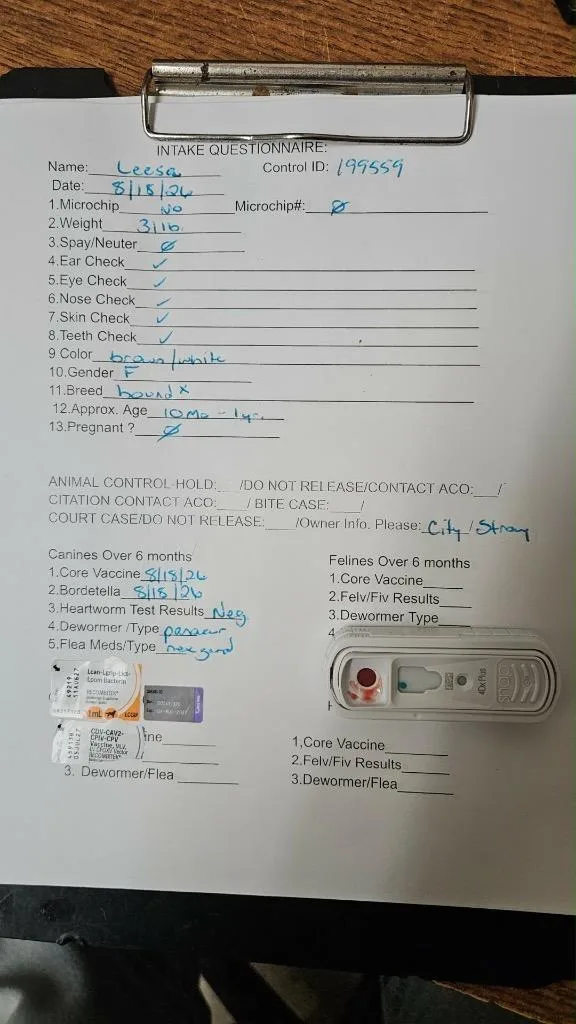 INTAKE QUESTIONNAIRE:
Name: Leesa Control ID: 199559
Date: 8/18/26
1.Microchip No Microchip#: Ø
2.Weight 31 lb
3.Spay/Neuter Ø
4.Ear Check ✓
5.Eye Check ✓
6.Nose Check ✓
7.Skin Check ✓
8.Teeth Check ✓
9 Color brown/white
10.Gender F
11.Breed hound x
12.Approx. Age 10mo - 1yr.
13.Pregnant ? Ø
ANIMAL CONTROL-HOLD: /DO NOT RELEASE/CONTACT ACO: /
CITATION CONTACT ACO: / BITE CASE: /
COURT CASE/DO NOT RELEASE: /Owner Info. Please: City / Stray
Canines Over 6 months
1.Core Vaccine 8/18/26
2.Bordetella 8/18/26
3.Heartworm Test Results Neg
4.Dewormer /Type panacur
5.Flea Meds/Type nexgard
Felines Over 6 months
1.Core Vaccine
2.Felv/Fiv Results
3.Dewormer Type
4
snap
4Dx Plus
Lcan-Lgrip-Licti-
Lpom Bacterin
RECOMBITEK
1mL
CDV-CAV2-
CPIV-CPV
Vaccine, MLV,
RECOMBITEK
ine
3. Dewormer/Flea
1,Core Vaccine
2.Felv/Fiv Results
3.Dewormer/Flea